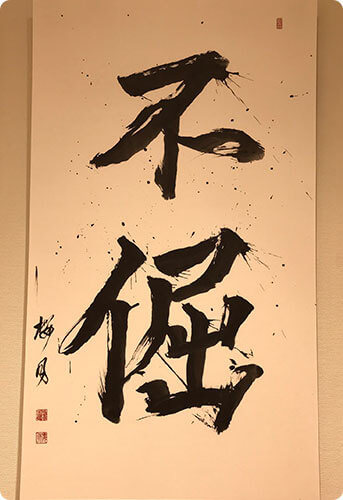 不
倔
梅月